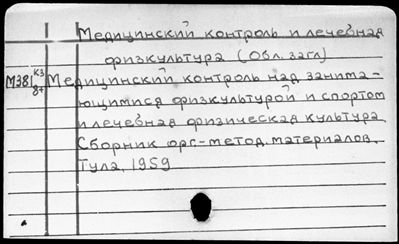 Медицинский контроль и лечебная
физкультура (Обл. загл)
М381 кз 8+ Медицинский контроль над занима-
ющимися физкультурой и спортом
и лечебная физическая культура.
Сборник орг-метод. материалов.
Тула, 1959